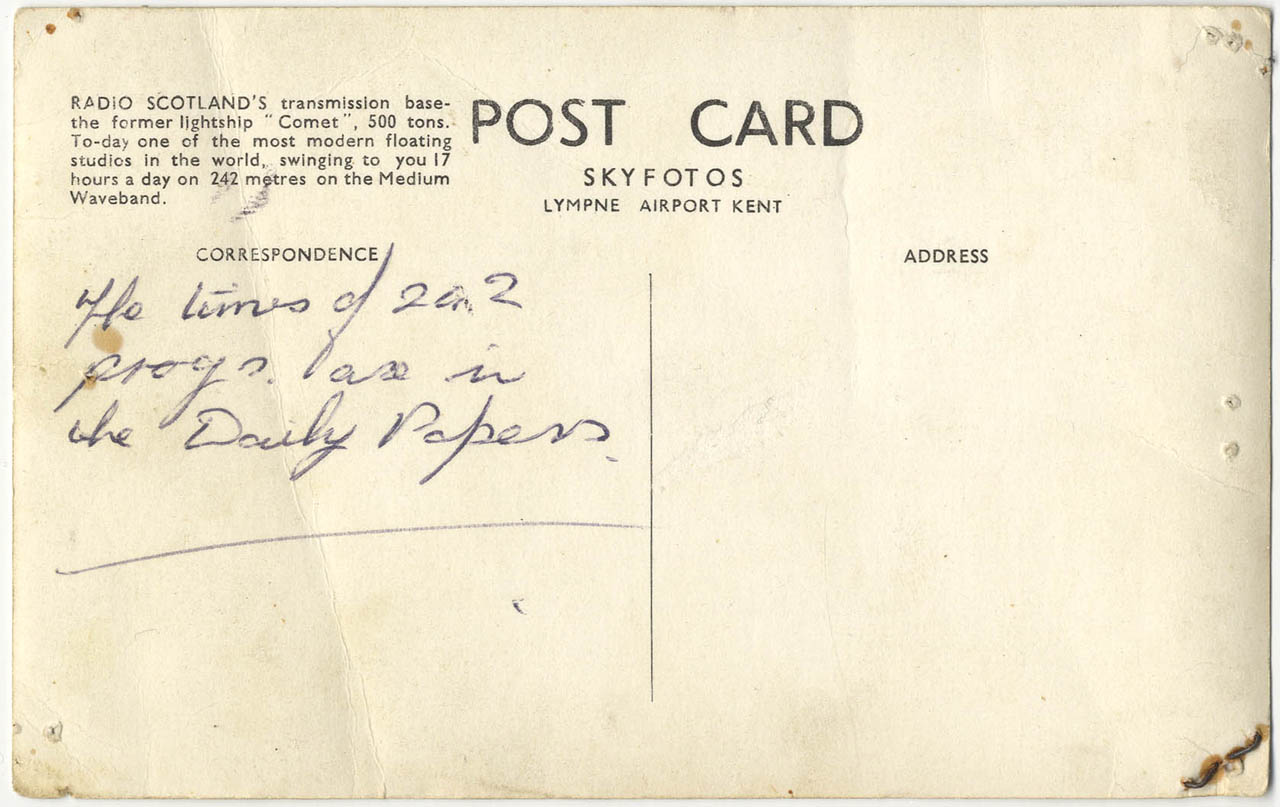 RADIO SCOTLAND'S transmission base-
the former lightship "Comet", 500 tons.
To-day one of the most modern floating
studios in the world, swinging to you 17
hours a day on 242 metres on the Medium
Waveband.
POST CARD
SKYFOTOS
LYMPNE AIRPORT KENT
CORRESPONDENCE
ADDRESS
The times of
progs. are in
the Daily Papers.